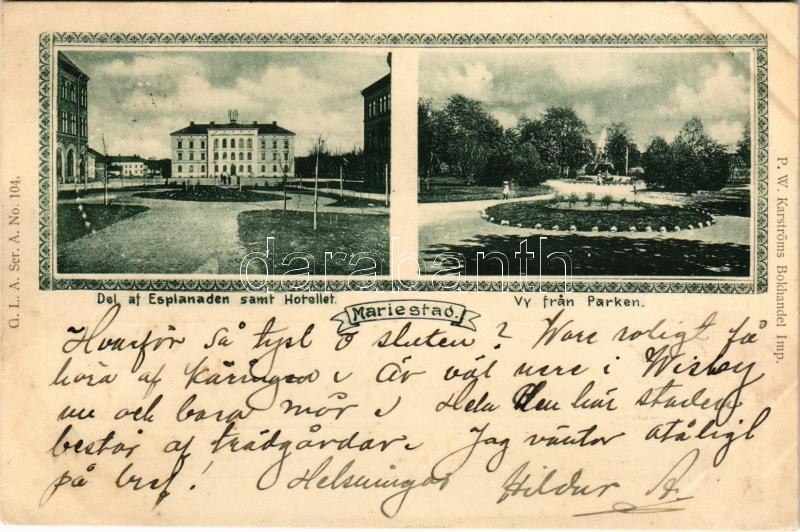 G. L. A. Ser. A. No. 104.
P. W. Karströms Bokhandel Imp.
darabanth
Del af Esplanaden samt Hotellet.
Vy från Parken.
Mariestad.
Hvarför så tyst o sluten? Vore roligt få
höra af käringen. Är väl nere i Wisby
nu och bara mår. Hela den här staden
består af trädgårdar. Jag väntar otåligt
på bref! Helsningar Hildur A.